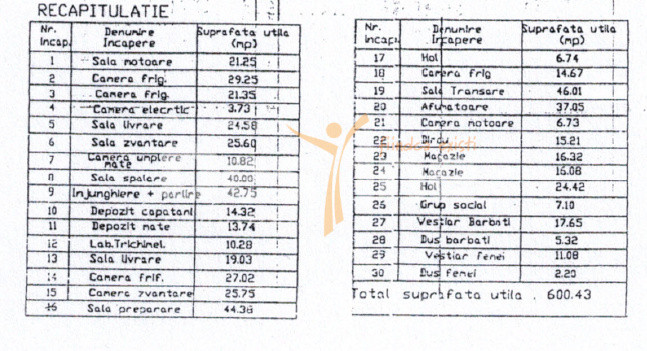 RECAPITULATIE
Nr. Incap. Denumire Incapere Suprafata utila (mp)
1 Sala motoare 21.25
2 Camera frig. 29.25
3 Camera frig. 21.35
4 Camera elecrtic 3.73
5 Sala livrare 24.58
6 Sala zvantare 25.60
7 Camera umplere mate 10.82
8 Sala spalare 40.00
9 Injunghiere + parlire 42.75
10 Depozit capatani 14.32
11 Depozit mate 13.74
12 Lab.Trichinel. 10.28
13 Sala livrare 19.03
14 Camera frif. 27.02
15 Camera zvantare 25.75
16 Sala preparare 44.36
Nr. Incap. Denumire Incapere Suprafata utila (mp)
17 Hol 6.74
18 Camera frig 14.67
19 Sala Transare 46.01
20 Afumatoare 37.05
21 Camera motoare 6.73
22 Birou 15.21
23 Magazie 16.32
24 Magazie 16.08
25 Hol 24.42
26 Grup social 7.10
27 Vestiar Barbati 17.65
28 Dus barbati 5.32
29 Vestiar femei 11.08
30 Dus femei 2.20
Total suprafata utila . 600.43